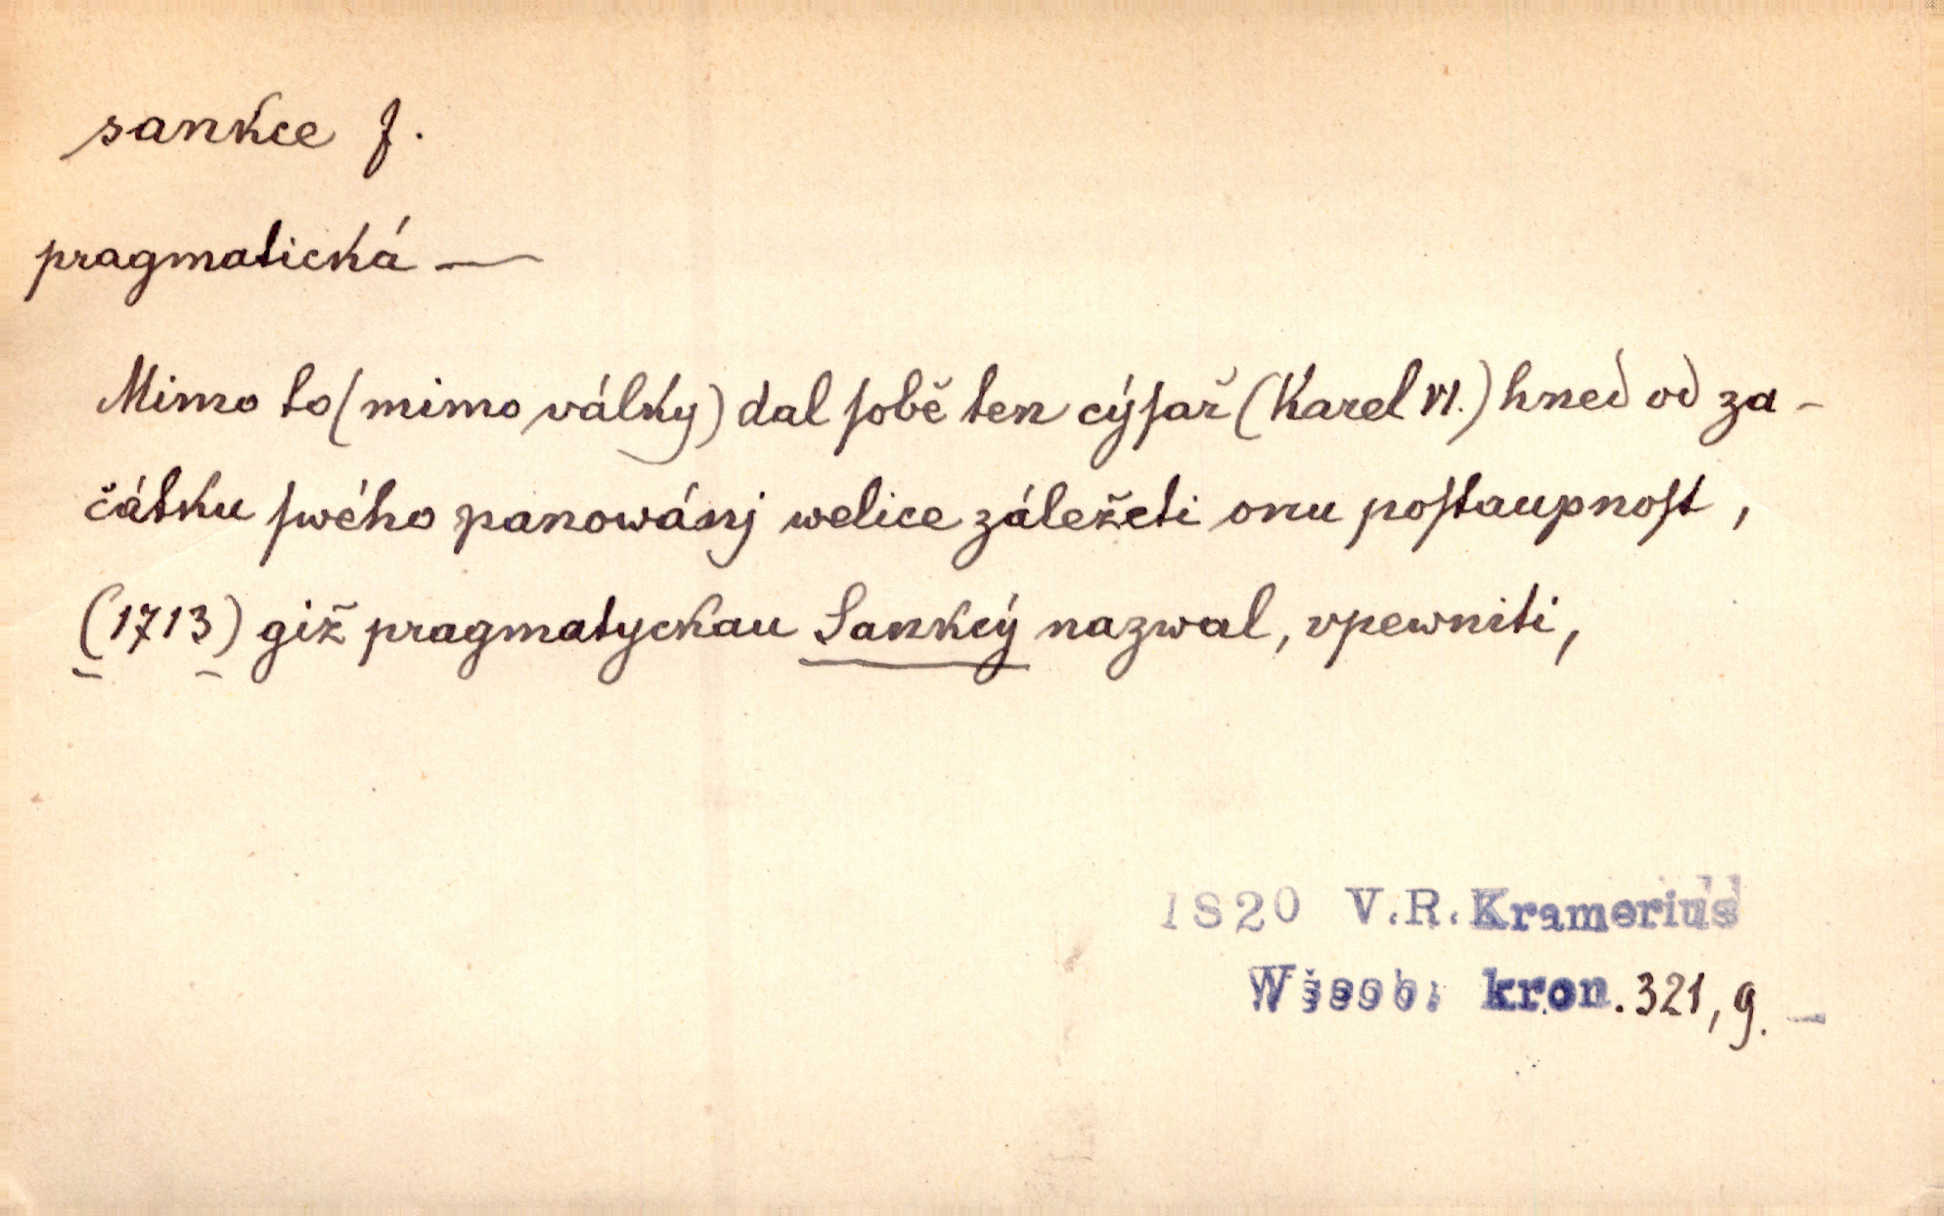 sankce f.
pragmatická —
Mimo to (mimo války) dal ſobě ten cýſař (Karel VI.) hned od za-
čátku ſwého panowánj welice záležeti onu poſtaupnoſt,
(1713) giž pragmatyckau Sankcý nazwal, vpewniti,
1820 V.R. Kramerius
Wšeob. kron. 321, 9. —